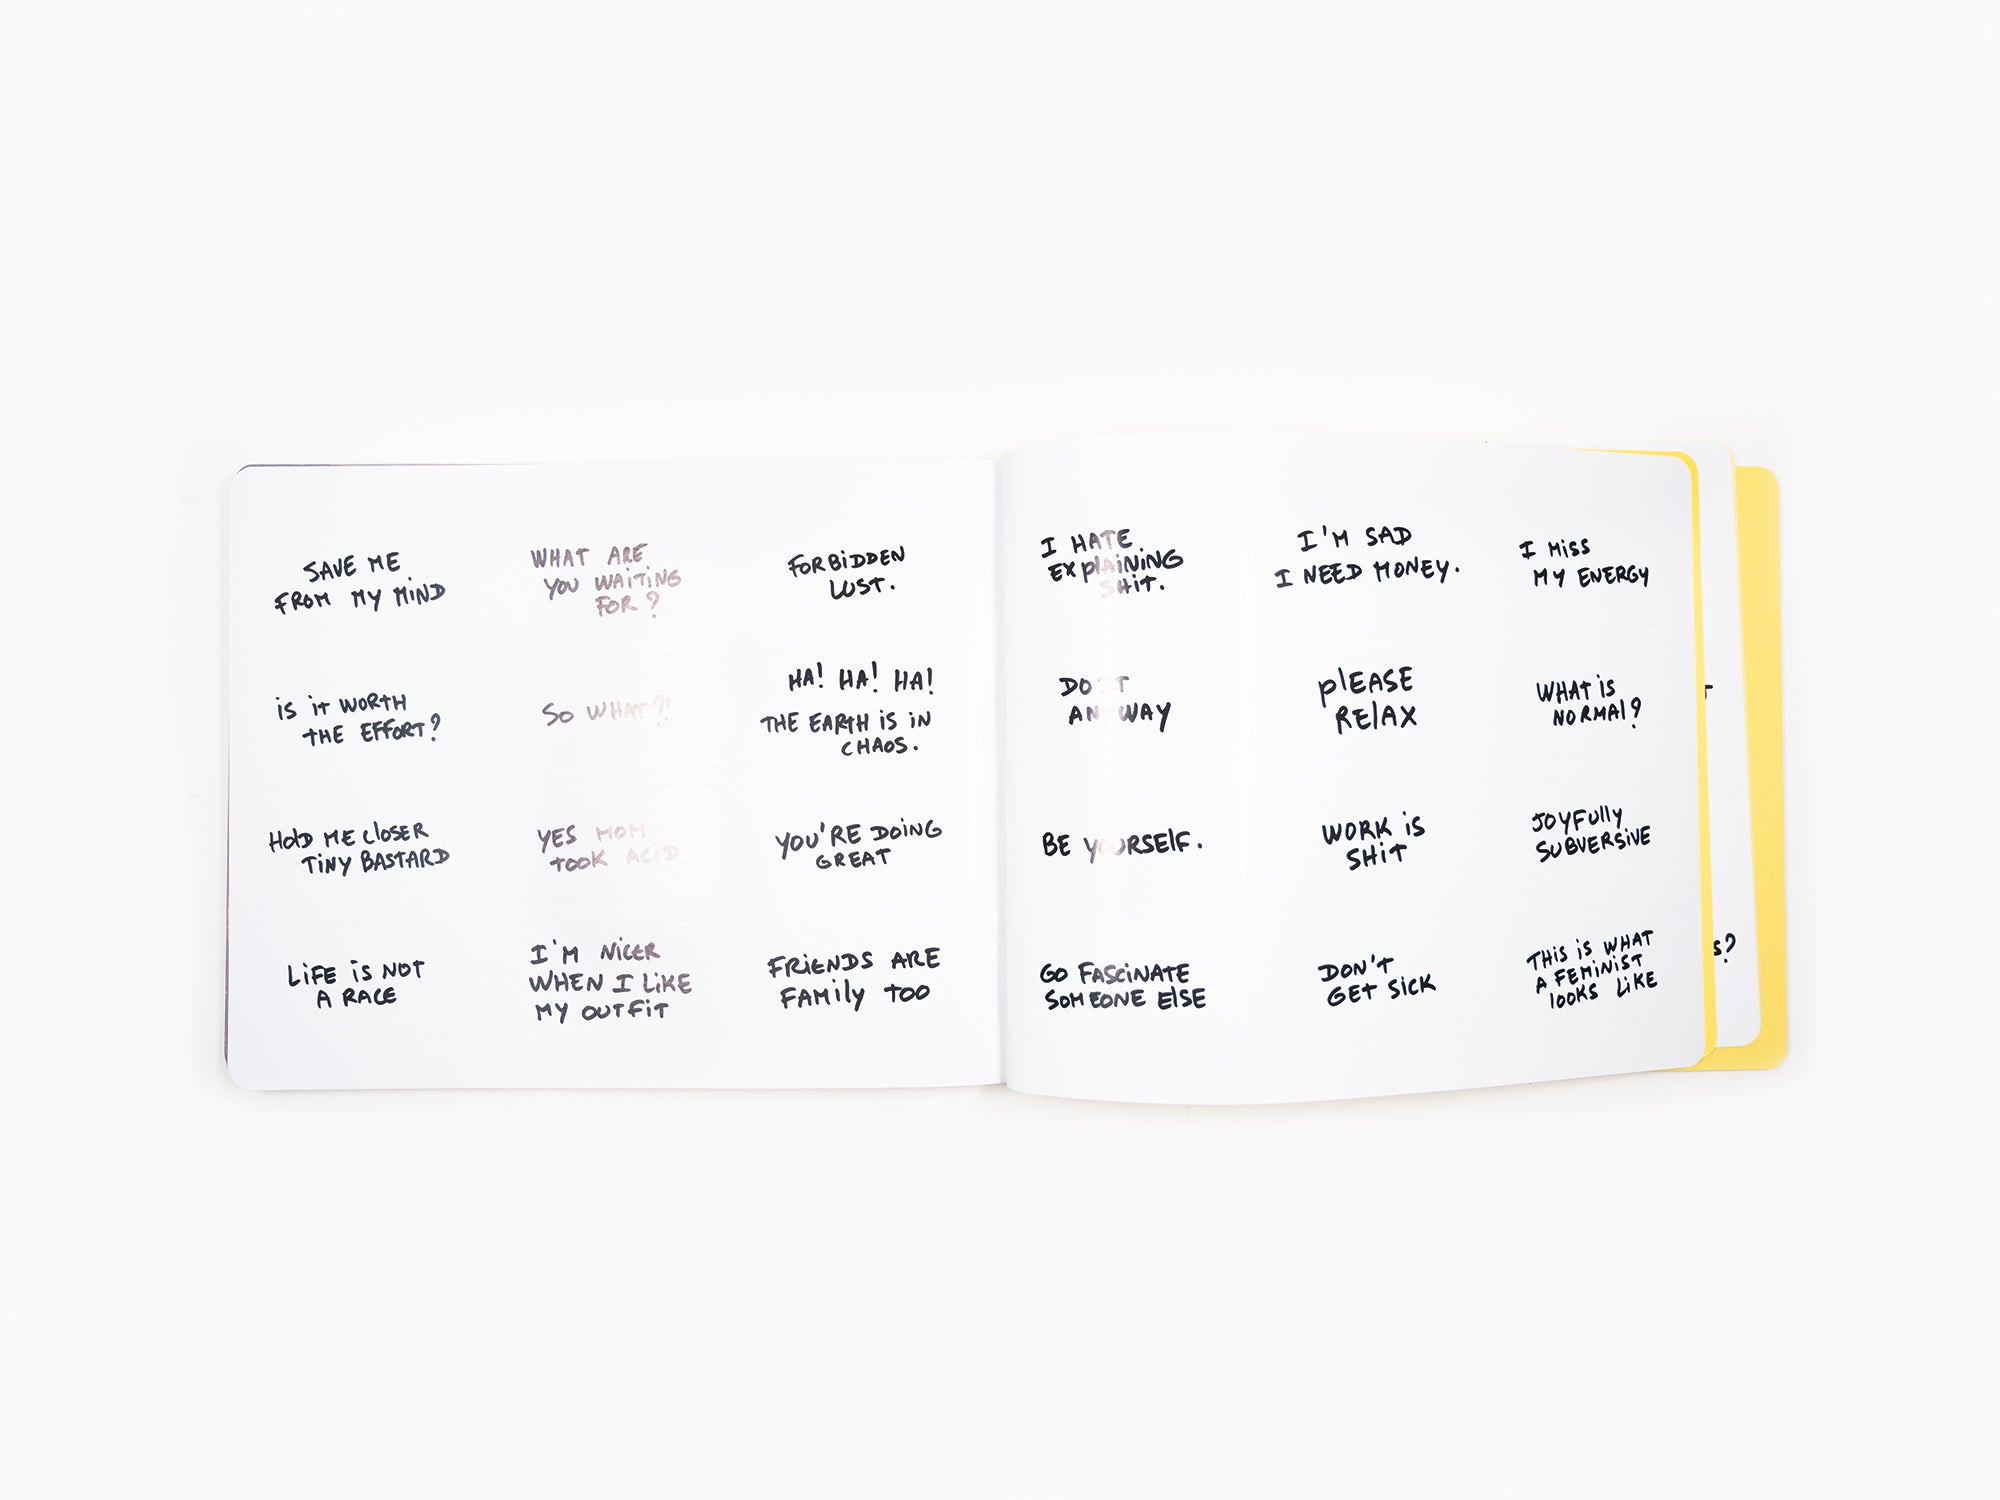 SAVE ME
FROM MY MIND
WHAT ARE
YOU WAITING
FOR?
FORBIDDEN
LUST.
iS iT WORTH
THE EFFORT?
SO WHAT?!
HA! HA! HA!
THE EARTH IS IN
CHAOS.
HOlD ME ClOSER
TiNY BASTARD
YES MOM
TOOK ACiD
YOU'RE DOiNG
GREAT
LiFE iS NOT
A RACE
I'M NiCER
WHEN I LiKE
MY OUTFiT
FRiENDS ARE
FAMily TOO
I HATE
EXplAiNiNG
SHiT.
I'M SAD
I NEED MONEY.
I MiSS
MY ENERGY
DO IT
ANYWAY
plEASE
RElAX
WHAT iS
NORMAl?
BE YOURSElF.
WORK iS
SHiT
JOYFUlly
SUBVERSiVE
GO FASCiNATE
SOMEONE ElSE
DON'T
GET SiCK
THiS iS WHAT
A FEMiNiST
lOOKS LiKE